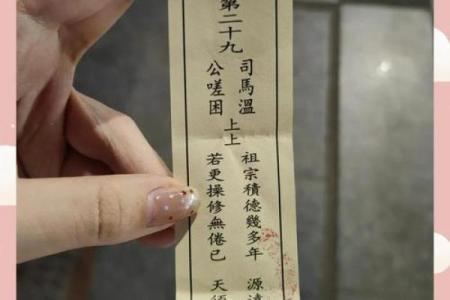 第二十九
司馬溫
公嗟困
上上
祖宗積德幾多年 源遠
若更操修無倦已 天須